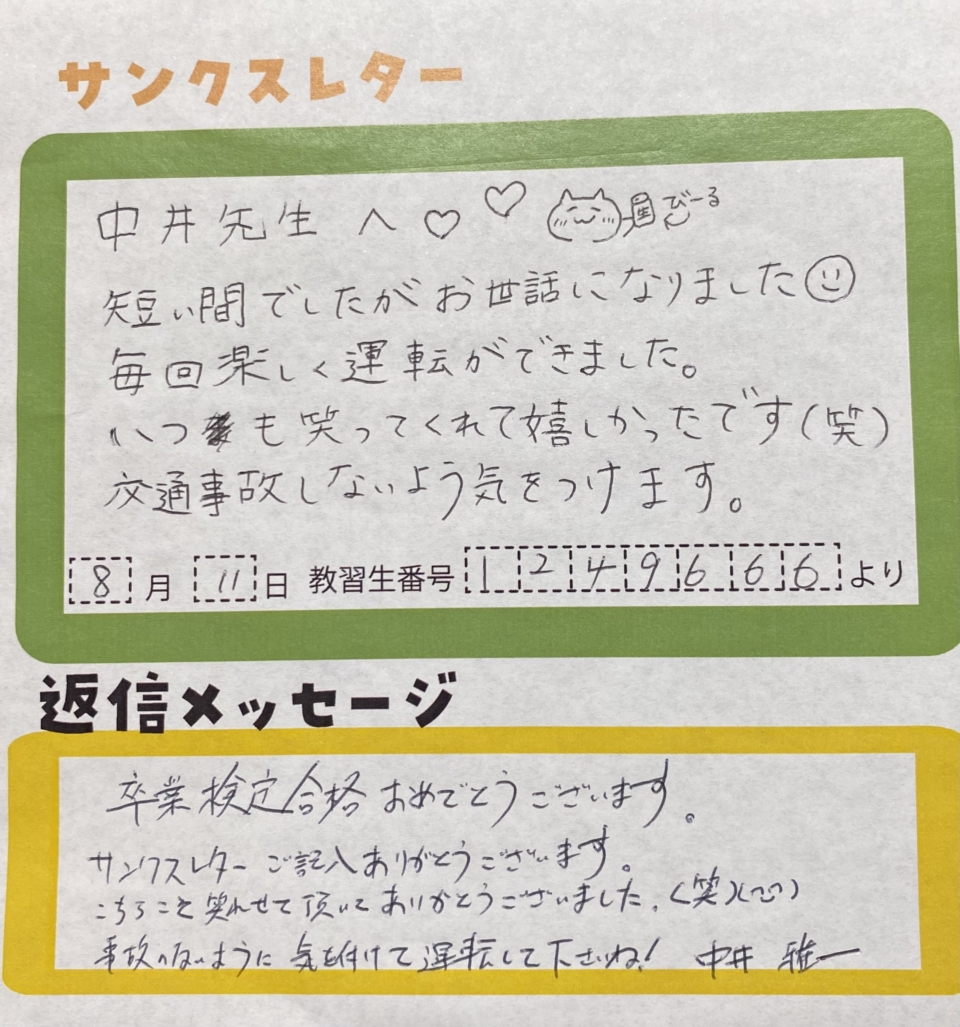 サンクスレター
中井先生へ♡♡ びーる
短い間でしたがお世話になりました
毎回楽しく運転ができました。
いつも笑ってくれて嬉しかったです(笑)
交通事故しないよう気をつけます。
8月11日 教習生番号 1249666より
返信メッセージ
卒業検定合格おめでとうございます。
サンクスレターご記入ありがとうございます。
こちらこそ笑わせて頂いてありがとうございました。(笑)
事故のないように気を付けて運転して下さいね! 中井 雅一